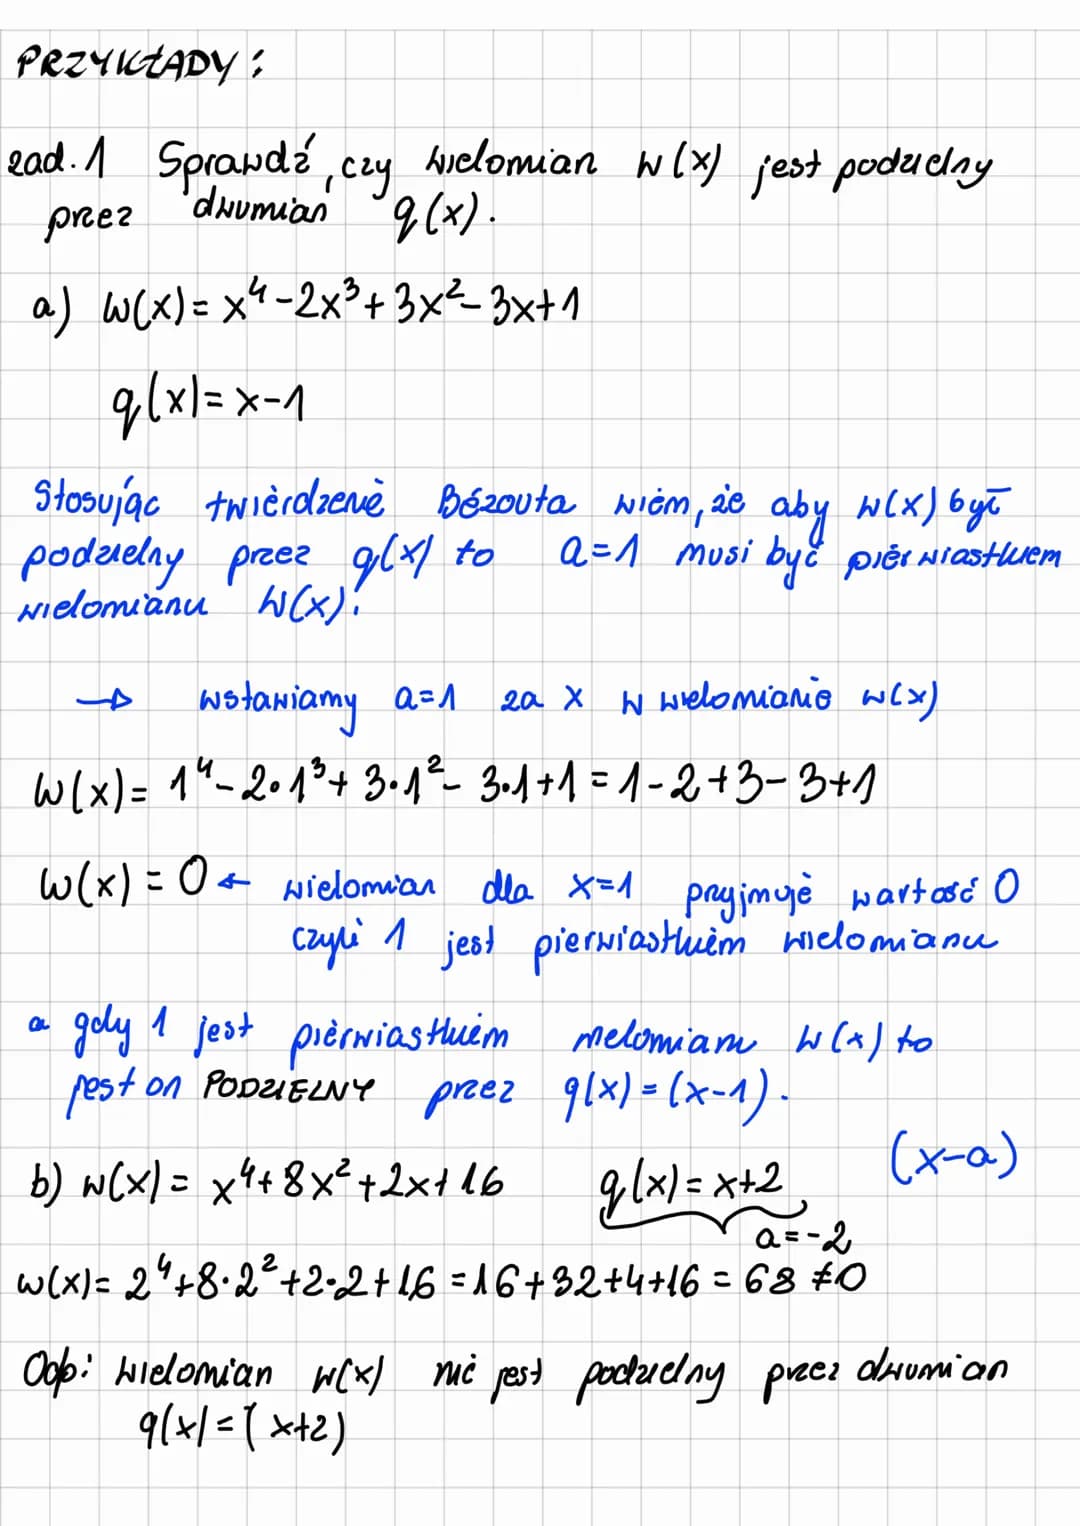 PRZYKŁADY:
zad. 1 Sprawdź, czy wielomian w(x) jest podzielny
przez dwumian q(x).
a) w(x) = x⁴ - 2x³ + 3x² - 3x + 1
q(x) = x - 1
Stosując twierdzenie Bézouta wiem, że aby w(x) był
podzielny przez q(x) to a=1 musi być pierwiastkiem
wielomianu w(x).
→ wstawiamy a=1 za x w wielomianie w(x)
w(x) = 1⁴ - 2·1³ + 3·1² - 3·1 + 1 = 1 - 2 + 3 - 3 + 1
w(x) = 0 ← wielomian dla x=1 przyjmuje wartość 0
czyli 1 jest pierwiastkiem wielomianu
a gdy 1 jest pierwiastkiem wielomianu w(x) to
jest on PODZIELNY przez q(x) = (x-1).
(x-a)
b) w(x) = x⁴ + 8x² + 2x + 16 q(x) = x+2
a = -2
w(x) = 2⁴ + 8·2² + 2·2 + 16 = 16 + 32 + 4 + 16 = 68 ≠ 0
Odp: wielomian w(x) nie jest podzielny przez dwumian
q(x) = (x+2)